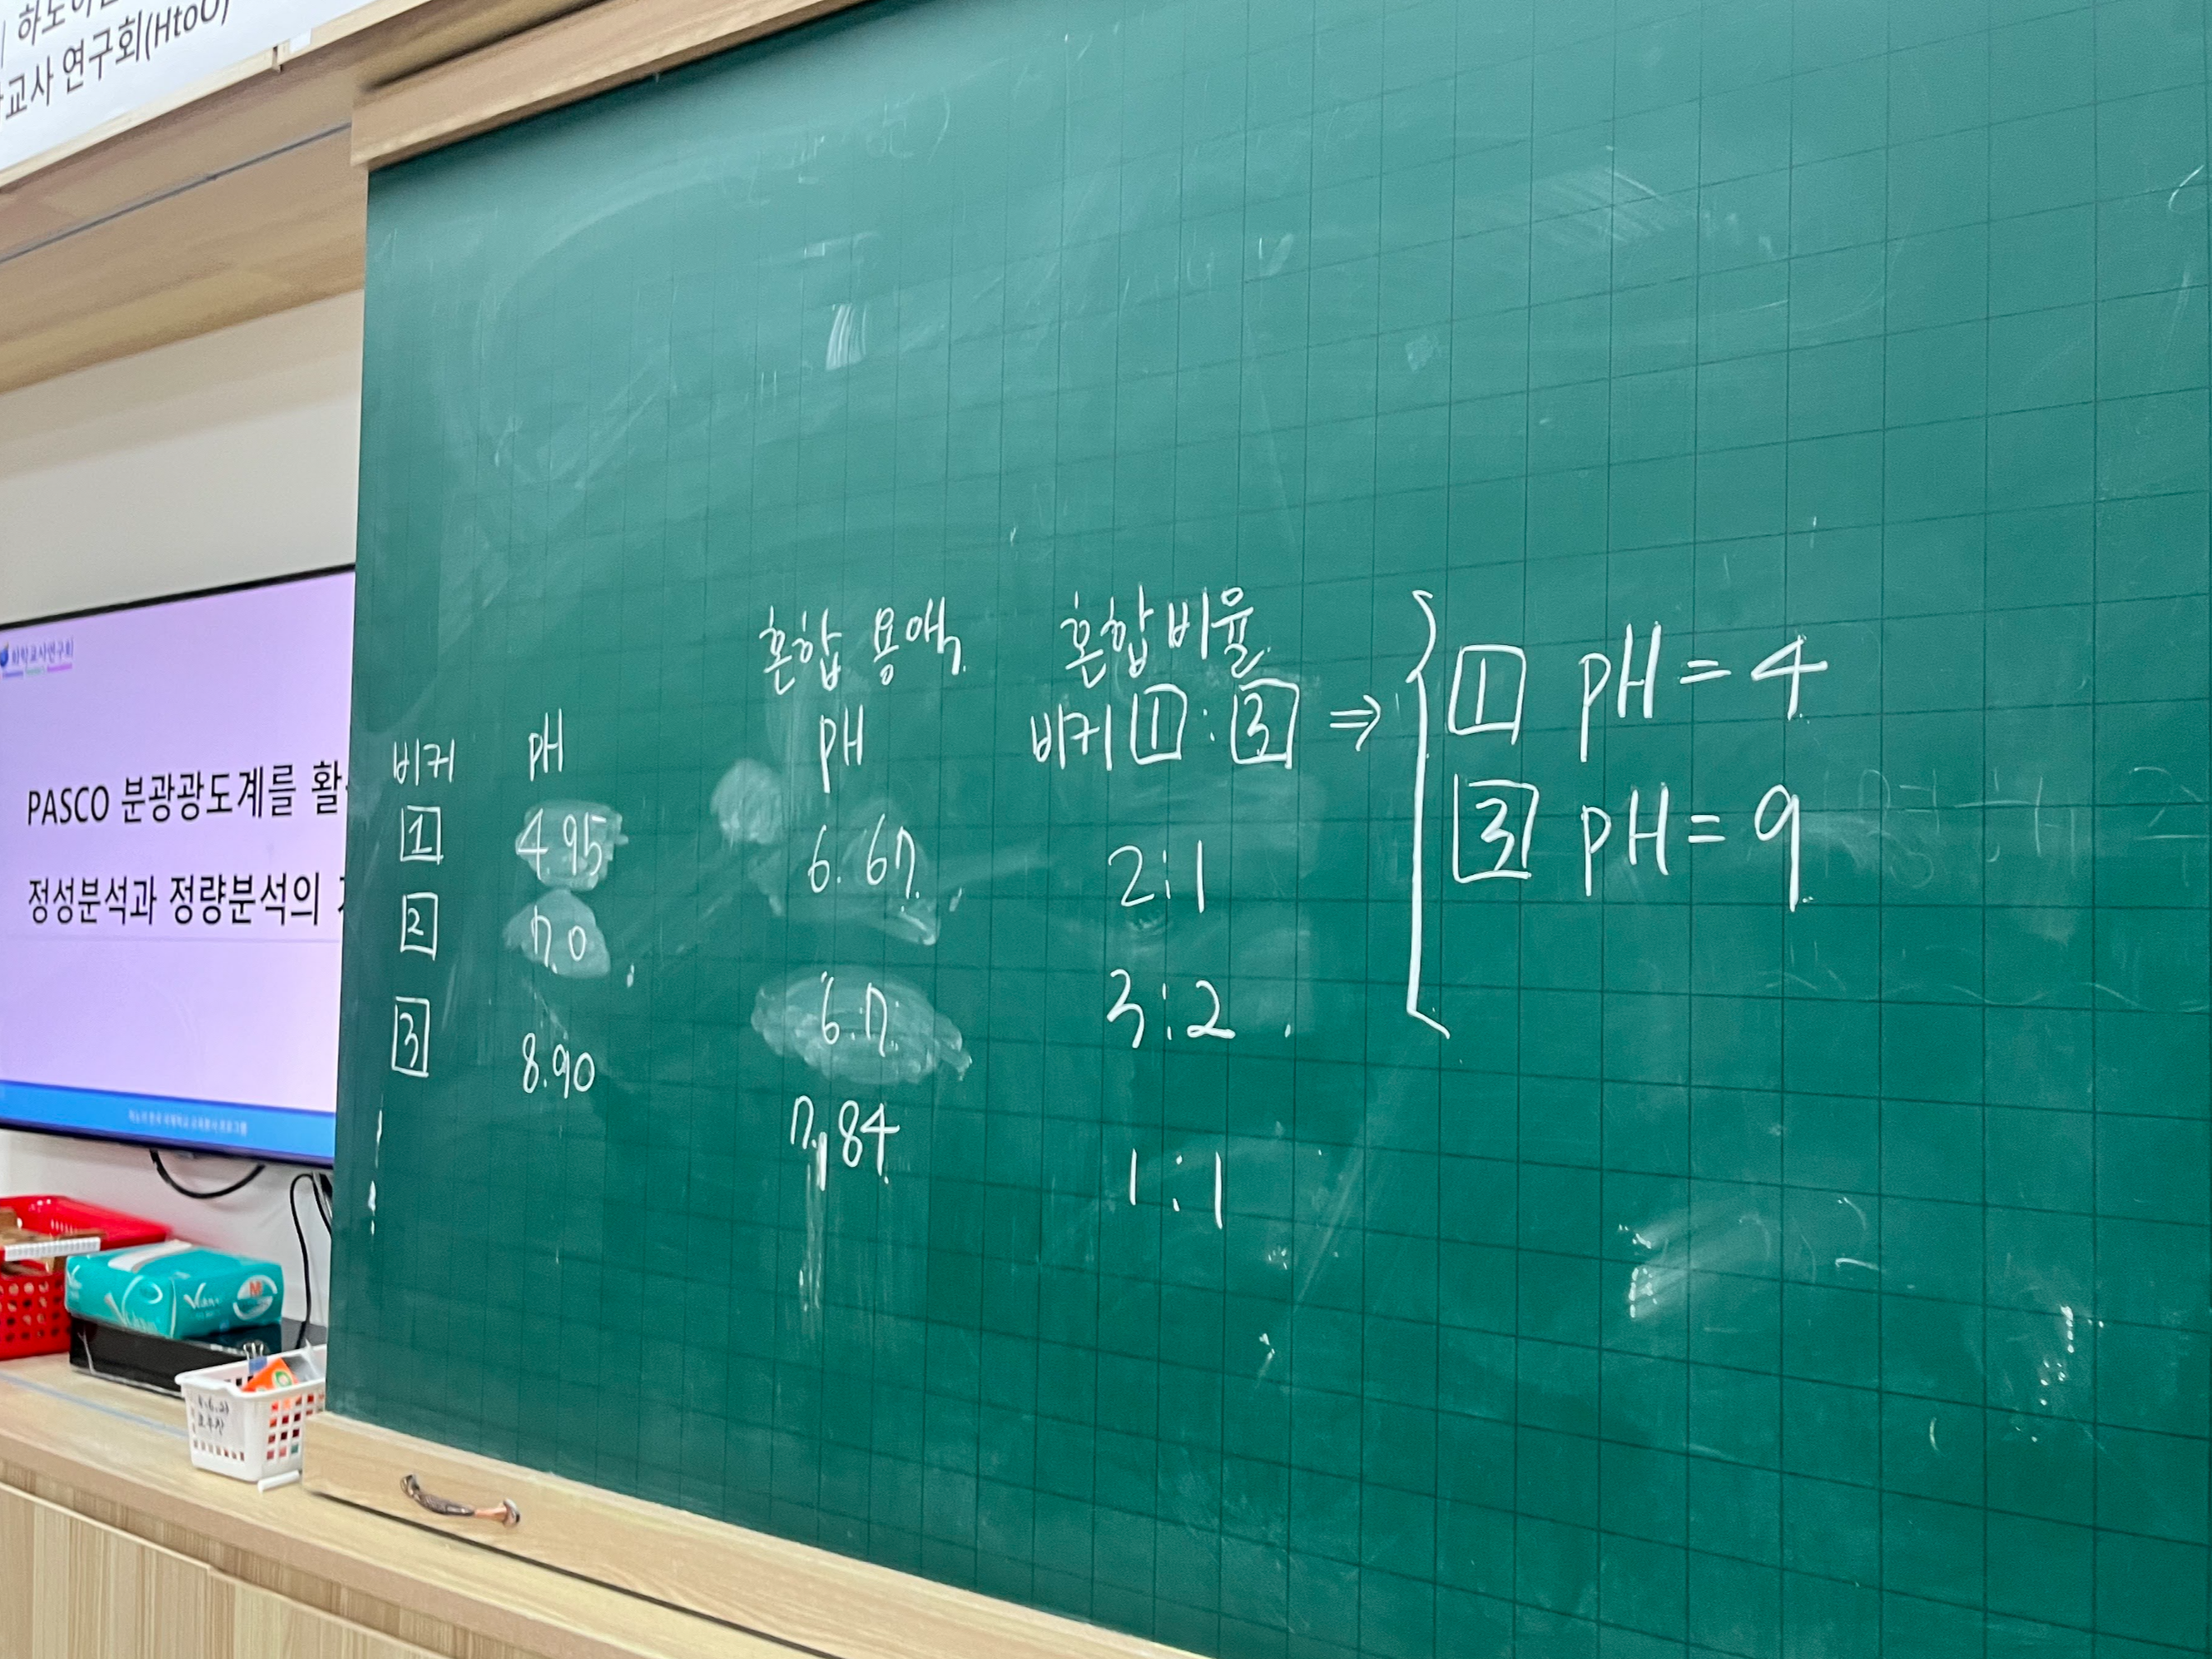 하노이한
교사 연구회(HtoO)
화학교사연구회
PASCO 분광광도계를 활
정성분석과 정량분석의
비커 pH
1 4.95
2 7.0
3 8.90
혼합 용액 혼합비율
pH 비커 1 : 3 ⇒
6.67 2:1
6.7 3:2
7.84 1:1
1 pH = 4
3 pH = 9